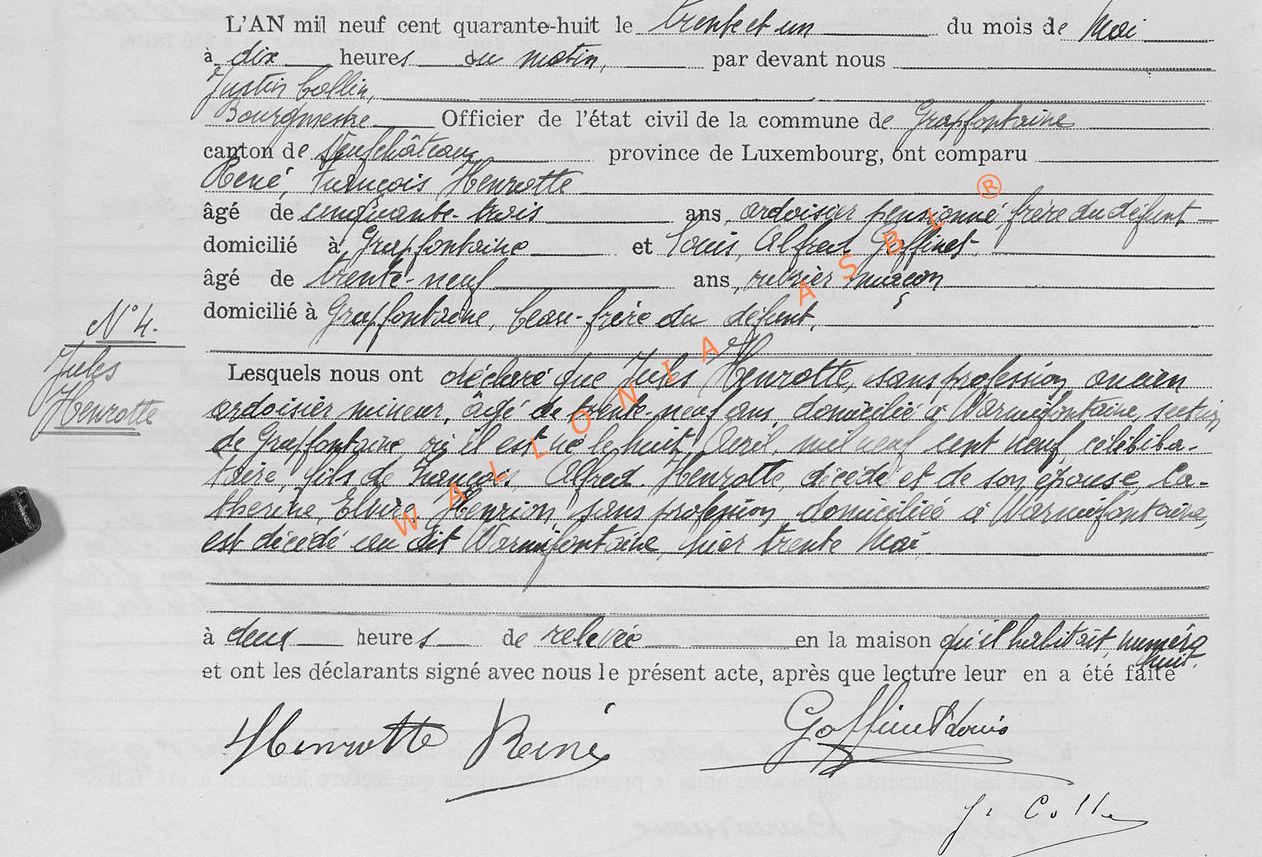 L'AN mil neuf cent quarante-huit le trente et un du mois de Mai
à dix heures du matin, par devant nous
Justin Collin,
Bourgmestre Officier de l'état civil de la commune de Grapfontaine
canton de Neufchâteau province de Luxembourg, ont comparu
René, François Henrotte
âgé de cinquante-trois ans, ardoisier pensionné, frère du défunt
domicilié à Grapfontaine et Louis, Alfred Goffinet,
âgé de trente-neuf ans, ouvrier maçon
domicilié à Grapfontaine, beau-frère du défunt,
N° 4.
Jules
Henrotte
Lesquels nous ont déclaré que Jules Henrotte, sans profession, ancien
ardoisier mineur, âgé de trente-neuf ans, domicilié à Warmifontaine, section
de Grapfontaine, où il est né le huit Avril mil neuf cent neuf, céliba-
taire, fils de François, Alfred Henrotte, décédé et de son épouse, Ca-
therine, Elvire Henrion, sans profession, domiciliée à Warmifontaine,
est décédé au dit Warmifontaine, hier trente Mai,
à deux heures de relevée en la maison qu'il habitait, numéro
huit.
et ont les déclarants signé avec nous le présent acte, après que lecture leur en a été faite
Henrotte René
Goffinet Louis
J. Collin
WALLONIA ASBL ®